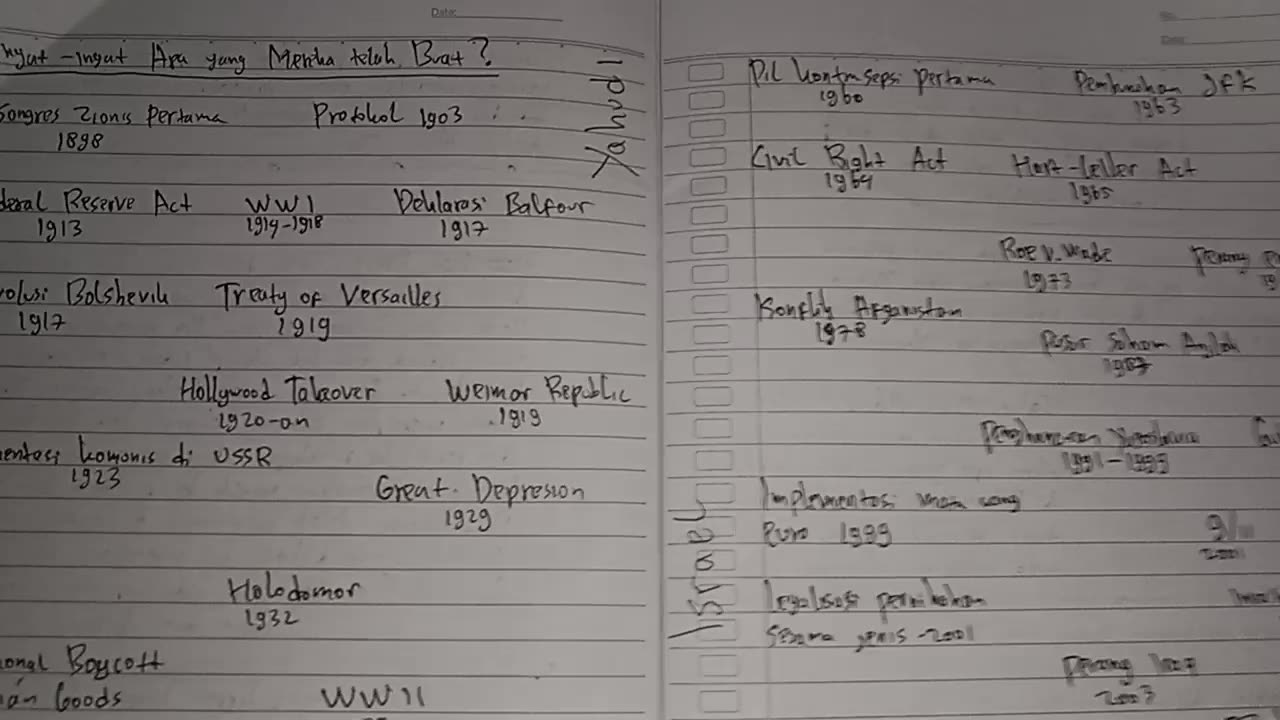 Date:
ngat-ingat Apa yang Mereka telah Buat?
Kongres Zionis Pertama Protokol 1903
1898
deral Reserve Act WWI Deklarasi Balfour
1913 1914-1918 1917
volusi Bolshevik Treaty of Versailles
1917 1919
Hollywood Takeover Weimar Republic
1920-an 1919
mentasi komunis di USSR
1923
Great Depresion
1929
Holodomor
1932
ional Boycott
man Goods WWII
No:
Date:
Pil kontrasepsi pertama Pembunuhan JFK
1960 1963
Civil Right Act Hart-Celler Act
1964 1965
Roe v. Wade Perang
1973 19
Konflik Afganistan
1978
Pasar Saham Anjlok
1987
Yugoslavia
1991-1999
Implementasi mata uang
Euro 1999 9/11
2001
legalisasi pernikahan
sesama jenis -2001
Perang
2003